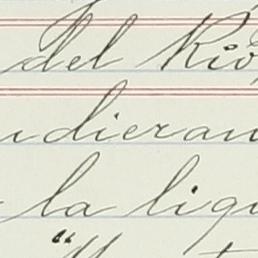 del Rio
udieran
la liqu
"